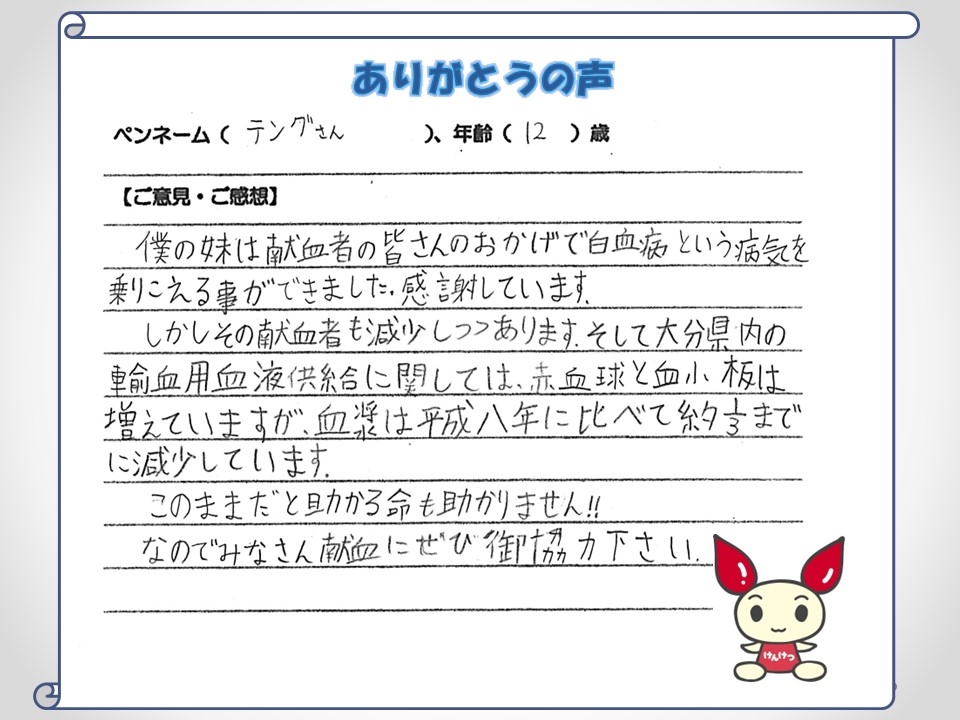 ありがとうの声
ペンネーム( テングさん )、年齢( 12 )歳
【ご意見・ご感想】
僕の妹は献血者の皆さんのおかげで白血病という病気を
乗りこえる事ができました。感謝しています。
しかしその献血者も減少しつつあります。そして大分県内の
輸血用血液供給に関しては、赤血球と血小板は
増えていますが、血漿は平成八年に比べて約1/3まで
に減少しています。
このままだと助かる命も助かりません!!
なのでみなさん献血にぜひ御協力下さい。
けんけつ